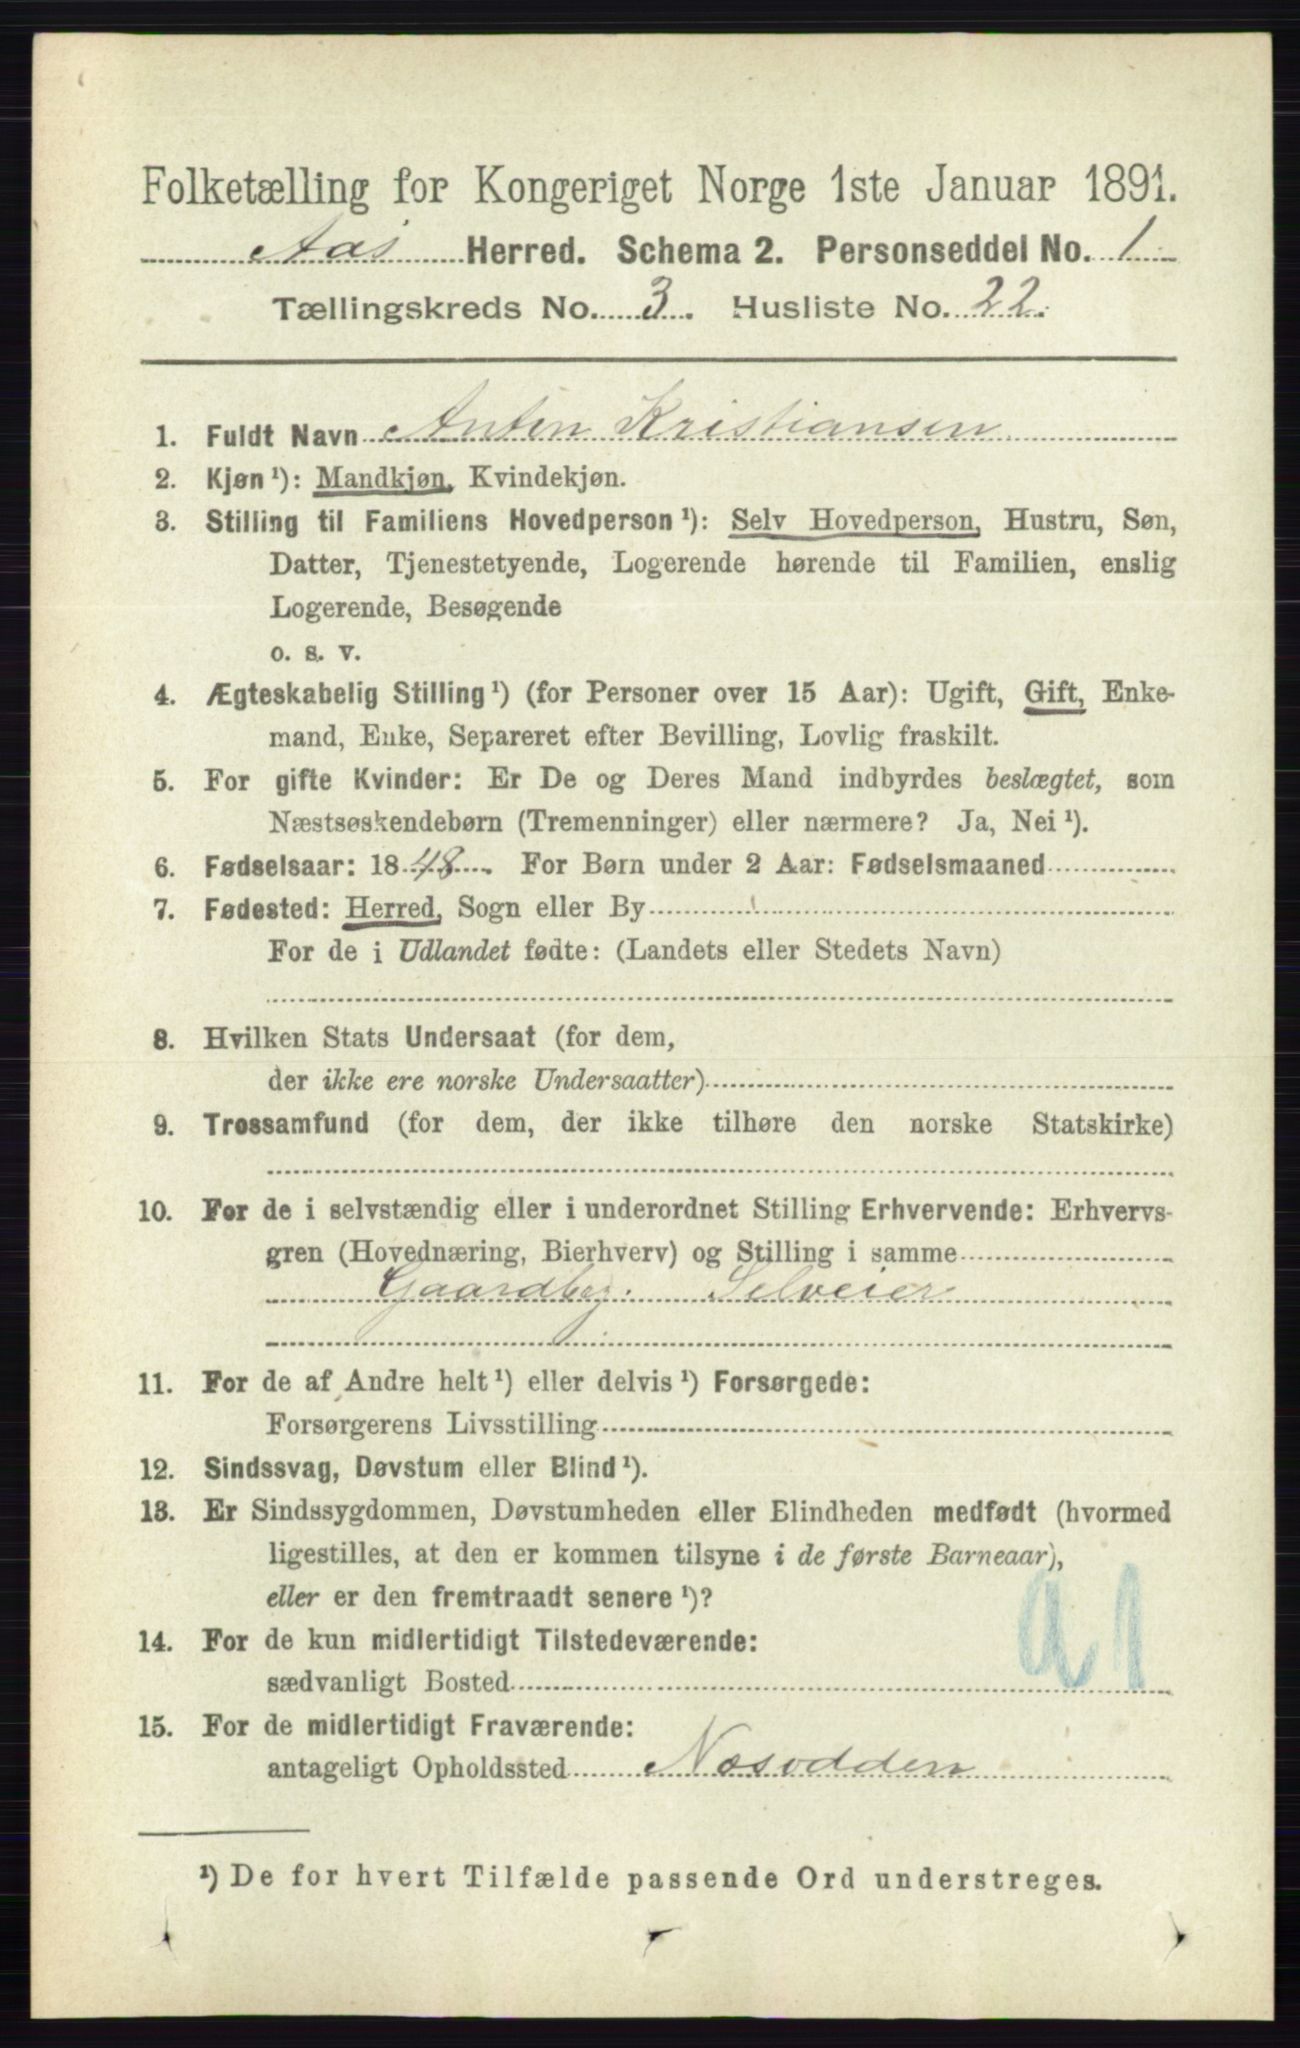 Folketælling for Kongeriget Norge 1ste Januar 1891.
Aas Herred. Schema 2. Personseddel No. 1
Tællingskreds No. 3. Husliste No. 22.
1. Fuldt Navn Anton Kristiansen
2. Kjøn¹): Mandkjøn, Kvindekjøn.
3. Stilling til Familiens Hovedperson¹): Selv Hovedperson, Hustru, Søn,
Datter, Tjenestetyende, Logerende hørende til Familien, enslig
Logerende, Besøgende
o. s. v.
4. Ægteskabelig Stilling¹) (for Personer over 15 Aar): Ugift, Gift, Enke-
mand, Enke, Separeret efter Bevilling, Lovlig fraskilt.
5. For gifte Kvinder: Er De og Deres Mand indbyrdes beslægtet, som
Næstsøskendebørn (Tremenninger) eller nærmere? Ja, Nei¹).
6. Fødselsaar: 1848. For Børn under 2 Aar: Fødselsmaaned
7. Fødested: Herred, Sogn eller By
For de i Udlandet fødte: (Landets eller Stedets Navn)
8. Hvilken Stats Undersaat (for dem,
der ikke ere norske Undersaatter)
9. Trossamfund (for dem, der ikke tilhøre den norske Statskirke)
10. For de i selvstændig eller i underordnet Stilling Erhvervende: Erhvervs-
gren (Hovednæring, Bierhverv) og Stilling i samme
Gaardbrg. Selveier
11. For de af Andre helt¹) eller delvis¹) Forsørgede:
Forsørgerens Livsstilling
12. Sindssvag, Døvstum eller Blind¹).
13. Er Sindssygdommen, Døvstumheden eller Blindheden medfødt (hvormed
ligestilles, at den er kommen tilsyne i de første Barneaar),
eller er den fremtraadt senere¹)?
14. For de kun midlertidigt Tilstedeværende:
sædvanligt Bosted
a1
15. For de midlertidigt Fraværende:
antageligt Opholdssted Næsodden
¹) De for hvert Tilfælde passende Ord understreges.